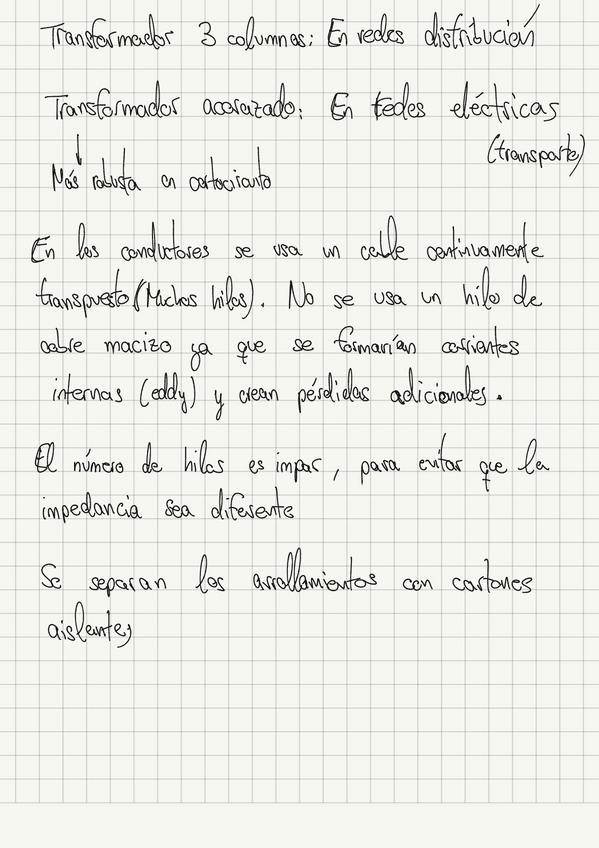 Transformador 3 columnas: En redes distribución
Transformador acorazado: En redes eléctricas
(transporte)
Más robusta en cortocircuito
En los conductores se usa un cable continuamente
transpuesto (Muchos hilos). No se usa un hilo de
cobre macizo ya que se formarían corrientes
internas (eddy) y crean pérdidas adicionales.
El número de hilos es impar, para evitar que la
impedancia sea diferente
Se separan los arrollamientos con cartones
aislantes